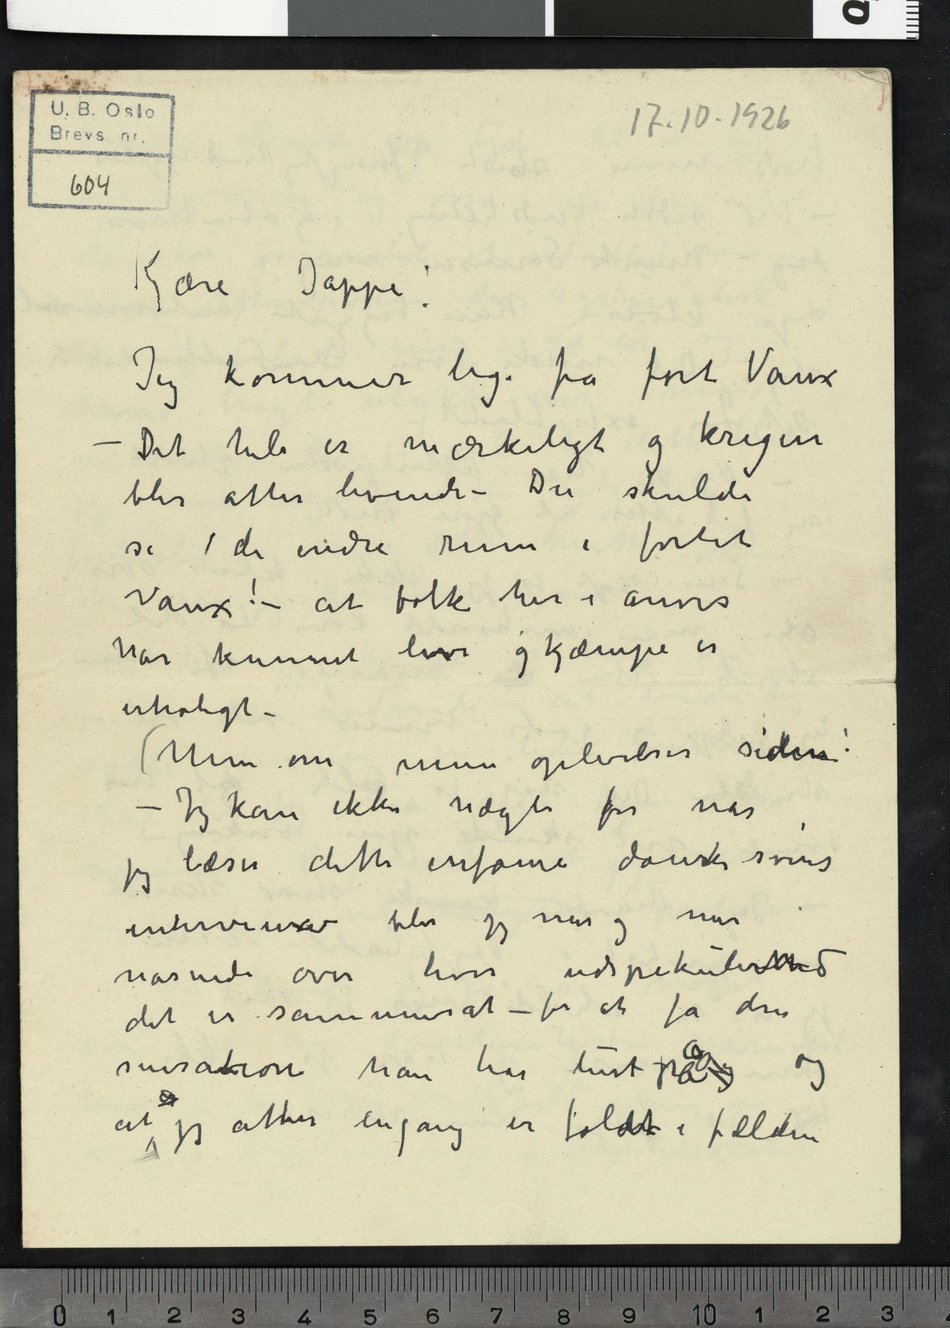 U. B. Oslo
Brevs. nr.
604
17.10.1926
Kjære Jappe!
Jeg kommer lige fra fort Vaux
– Det hele er mærkeligt og krigen
blir atter levende – Du skulde
se de indre rum i fortet
Vaux! – at folk her i
har kunnet leve og kjæmpe er
utroligt –
(Mere om mine oplevelser siden!
– Jeg kan ikke nægte for når
jeg læser dette infame danske svins
interview blir jeg mer og mer
rasende over hvor udspekuleret
det er sammensat – for at få den
sensation han har lyst på og
at jeg atter engang er faldet i fælden
0 1 2 3 4 5 6 7 8 9 10 1 2 3